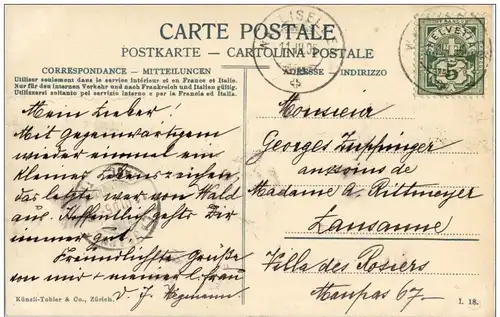 CARTE POSTALE
POSTKARTE - CARTOLINA POSTALE
CORRESPONDANCE - MITTEILUNGEN
ADRESSE - INDIRIZZO
Utiliser seulement dans le service intérieur et en France et Italie.
Nur für den internen Verkehr und nach Frankreich und Italien gültig.
Utilizzarsi soltanto pel servizio interno e per la Francia ed Italia.
11.III.05
HELVETIA
5
Mein Lieber!
Mit Gegenwärtigem
wieder einmal ein
kleines Lebenszeichen,
das letzte war von Wald
aus. Hoffentlich gehts Dir
immer gut.
Freundlichste Grüße
von mir + meiner l. Frau
J. Wegmann
Monsieur
Georges Zuppinger
aux soins de
Madame A. Rittmeyer
Lausanne
Villa des Rosiers
Maupas 67
Künzli-Tobler & Co., Zürich.
I. 18.